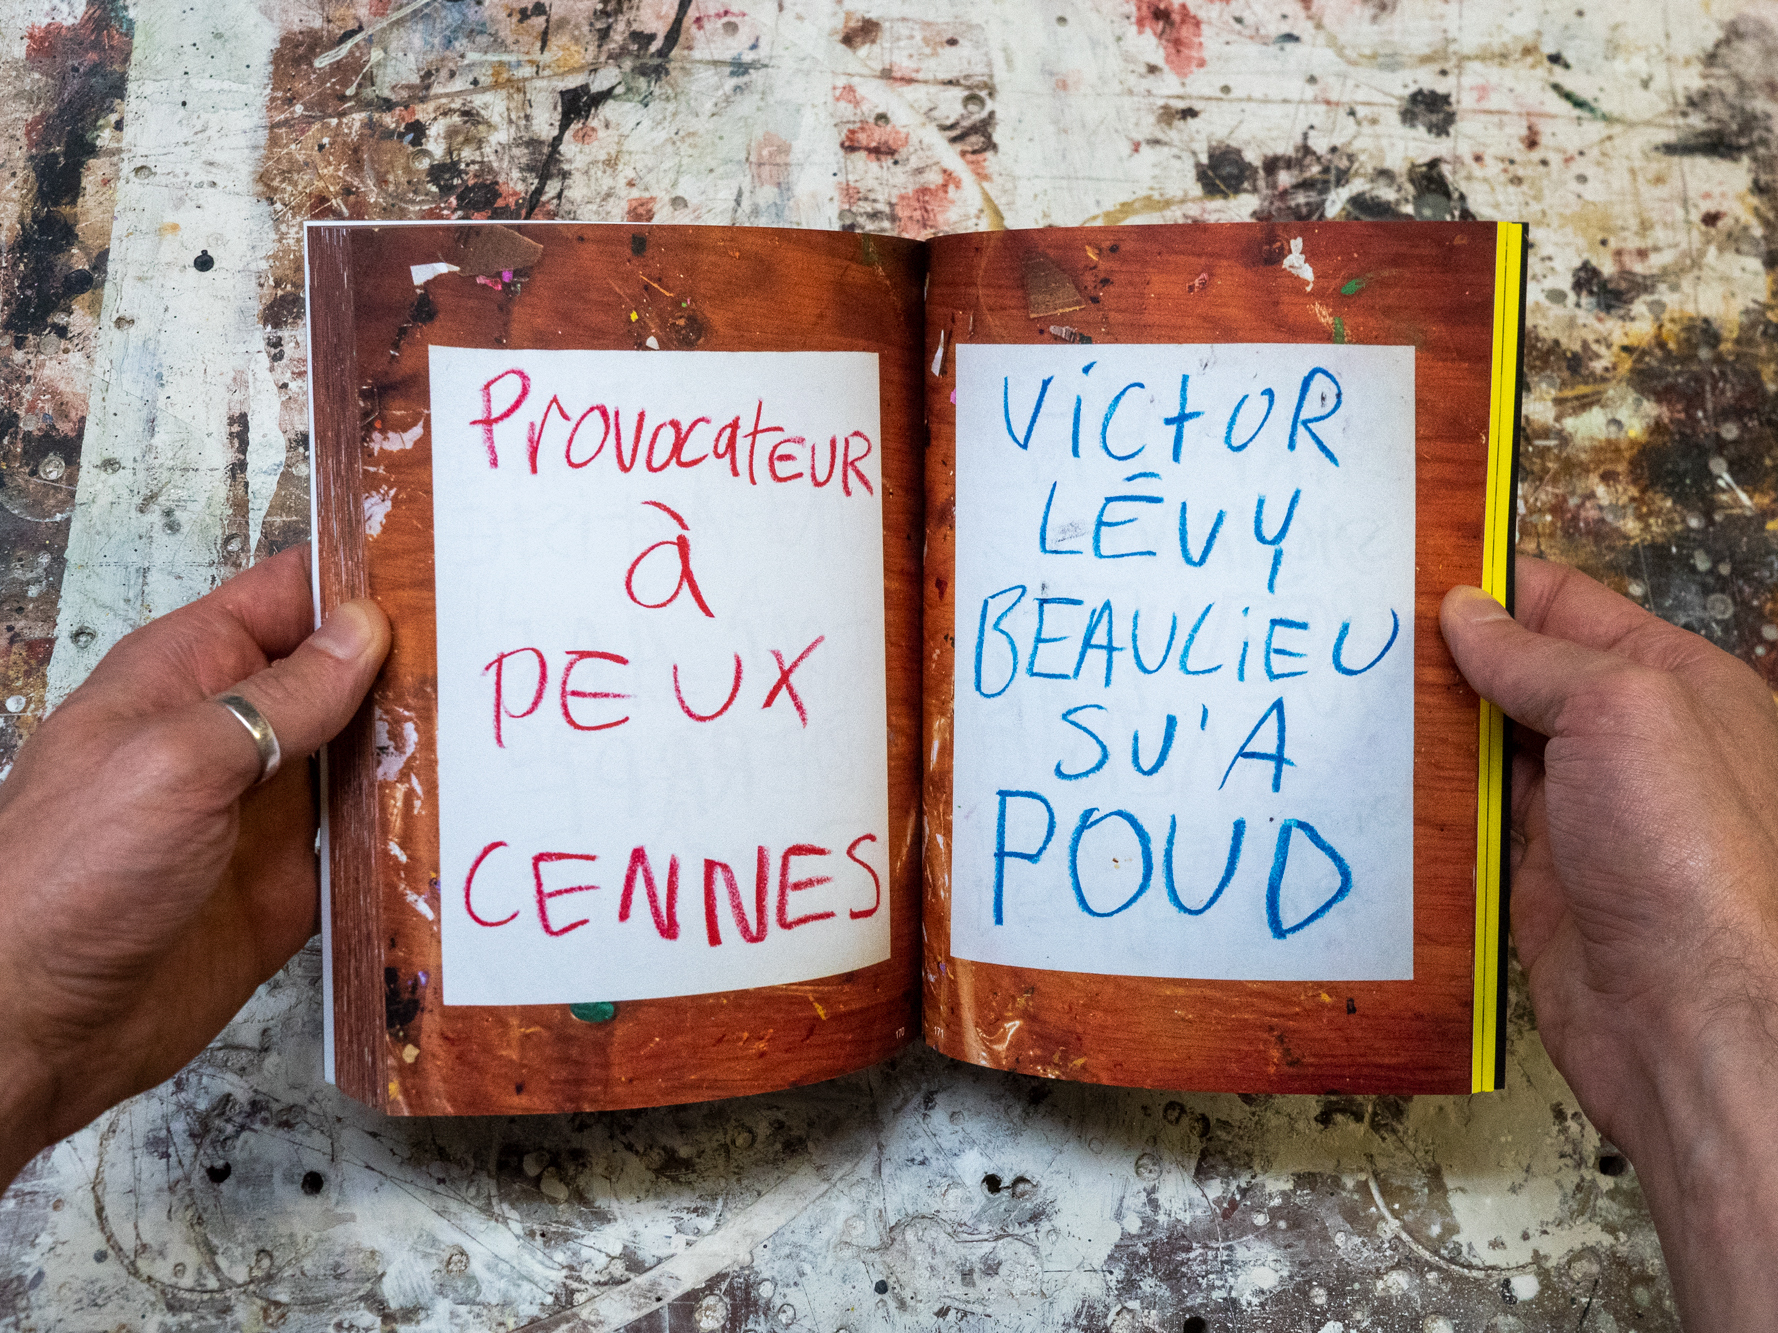 ProvocatEUR
à
PEUX
CENNES
170
ViCtOR
LÉVY
BEAULiEU
SU'A
POUD
171